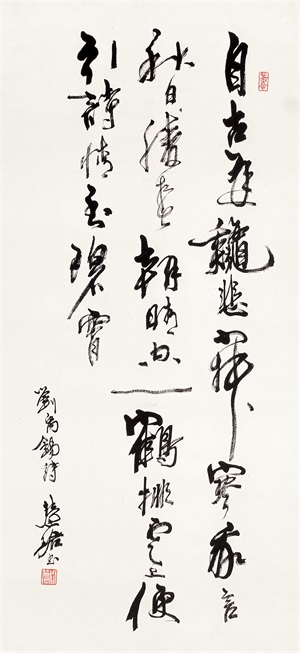 自古逢龝悲寂寥我言
秋日勝春朝晴空一鶴排雲上便
引詩情到碧霄
劉禹錫詩 慧珺書